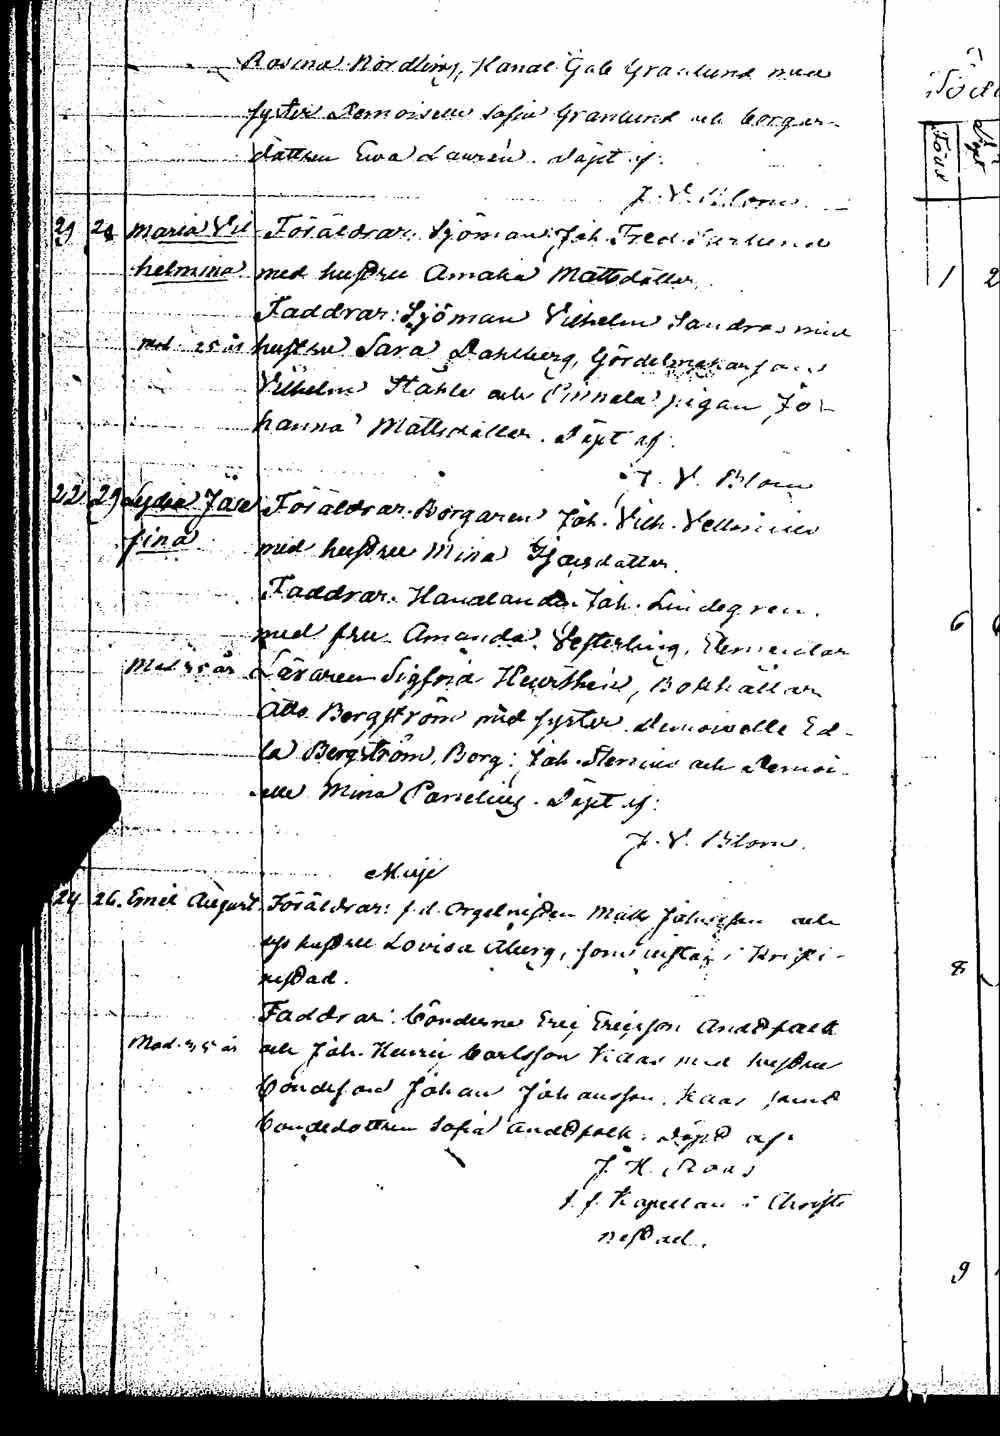 Rosina Nordling, Handl Gab Granlund med
syster Demoiselle Sofia Granlund och borgar-
dottren Ewa Laurén. Döpt af:
J. V. Blom
29 24 Maria Vil
helmina
Mod 25 år
Föräldrar: Sjöman Joh. Fred
med hustru Amalia Mattsdotter
Faddrar: Sjöman Vilhelm Sandros med
hustru Sara Dahlberg, Gördelmakar
Vilhelm Ståhle och pigan Jo-
hanna Mattsdotter. Döpt af:
J. V. Blom
22 29 Lydia Jose
fina
Mod 35 år
Föräldrar: Borgaren Joh. Vilh.
med hustru Mina
Faddrar: Handlanden Joh. Lindegren
med fru Amanda Vesterling, Elementar
Läraren Sigfrid, Bokhållar
Otto Bergström med syster Demoiselle Ed-
la Bergström, Borg: Joh. och Demoi-
selle Mina. Döpt af:
J. V. Blom
Maji
24 26. Emil August
Mod. 35 år
Föräldrar: f.d. Orgelnisten Matts Johnsson och
hustru Lovisa Åberg, som vistas i Kristi-
nestad.
Faddrar: Bönderne Eric Ericsson Andtfolk
och Joh. Henric Carlsson Klaas med hustru
Bondeson Johan Johansson Klaas samt
Bondedottren Sofia Andtfolk. Döpt af:
J. H. Roos
t. f. Kapellan i Christi
nestad.
Föde
Född
Döpt
1
2
6
8
9